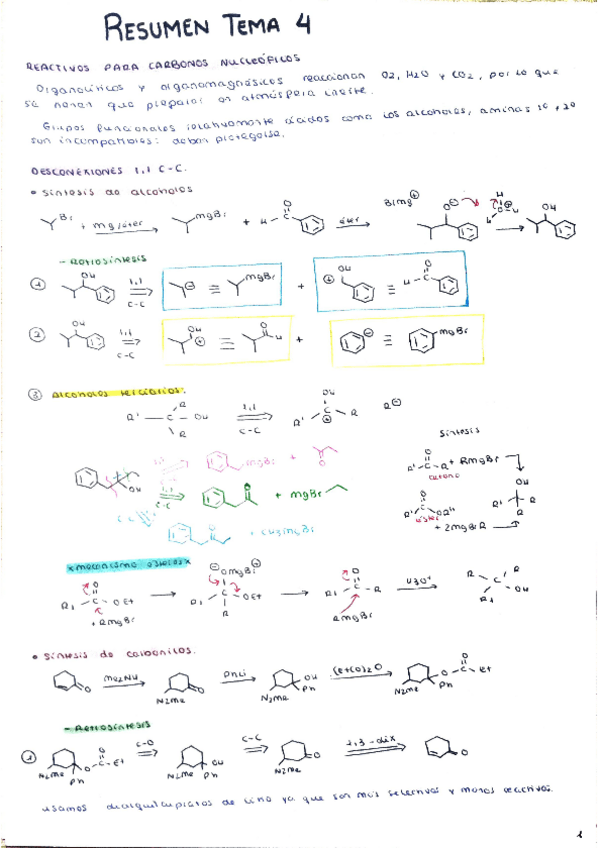 RESUMEN TEMA 4
REACTIVOS PARA CARBONOS NUCLEÓFILOS
Organolíticos y organomagnésicos reaccionan O2, H2O y CO2, por lo que
se tienen que preparar en atmósfera inerte.
Grupos funcionales relativamente ácidos como los alcoholes, aminas 1º y 2º
son incompatibles: deben protegerse.
DESCONEXIONES 1,1 C-C.
• Síntesis de alcoholes
Br + Mg/éter MgBr + H C O éter BrMg⊕ O⊖ H O⊕ H OH
- Retrosíntesis
1 OH 1,1 C-C ⊖ ≡ MgBr + OH ⊕ ≡ H C O
2 OH 1,1 C-C OH ⊕ ≡ O H + ⊖ ≡ MgBr
3 Alcoholes terciarios:
R' C R OH R 1,1 C-C R' C OH ⊕ R R⊖
Síntesis
OH 1,1 MgBr + O
R' C O R + RMgBr
cetona
1,1 C-C O + MgBr
R' C O OR" OH R' R R
éster
+ 2MgBrR
C-C O + CH3MgBr
*Mecanismo ésteres*
R1 C O OEt + RMgBr ⊖OMgBr⊕ R1 C OEt R R1 C O R RMgBr H3O+ R C R R1 OH
• Síntesis de carbonilos.
O Me2NH NMe2 O PhLi OH Ph NMe2 (EtCO)2O O C O Et Ph NMe2
- Retrosíntesis
1 NMe2 O C O Et Ph C-O NMe2 OH Ph C-C O NMe2 1,3-diX O
Usamos dialquilcupratos de litio ya que son más selectivos y menos reactivos.
1